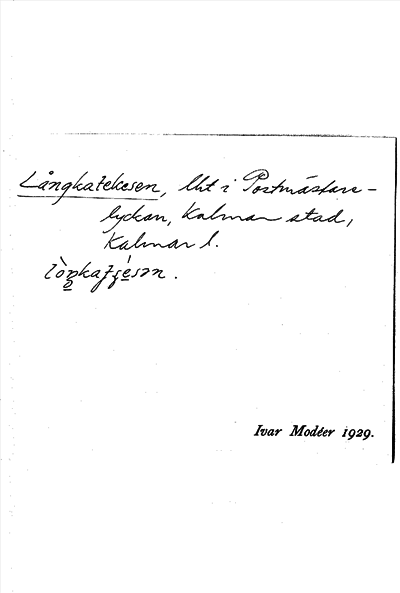 Långkatekesen, lht i Postmästare-
lyckan, Kalmar stad,
Kalmar l.
Ivar Modéer 1929.